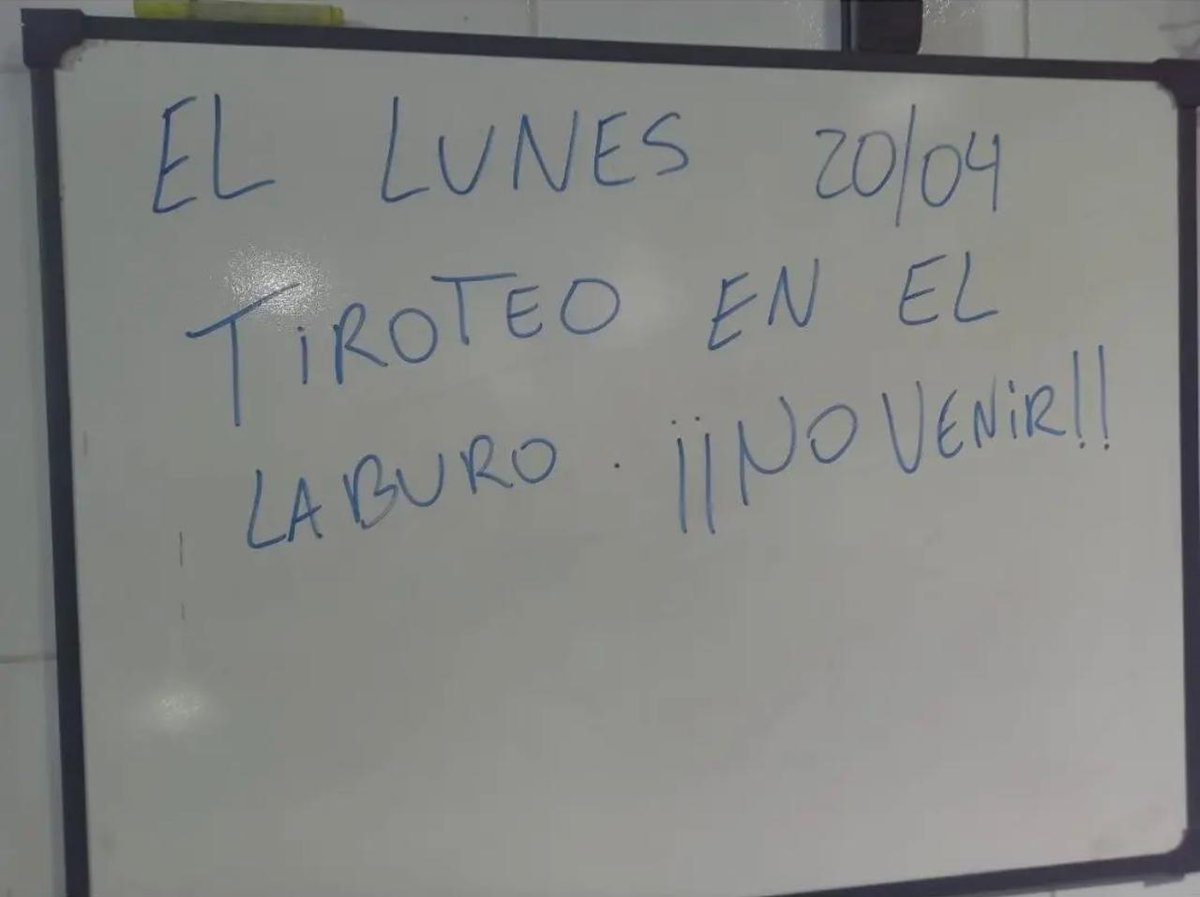 EL LUNES 20/04
TiROTEO EN EL
LABURO. ¡¡NO VENiR!!